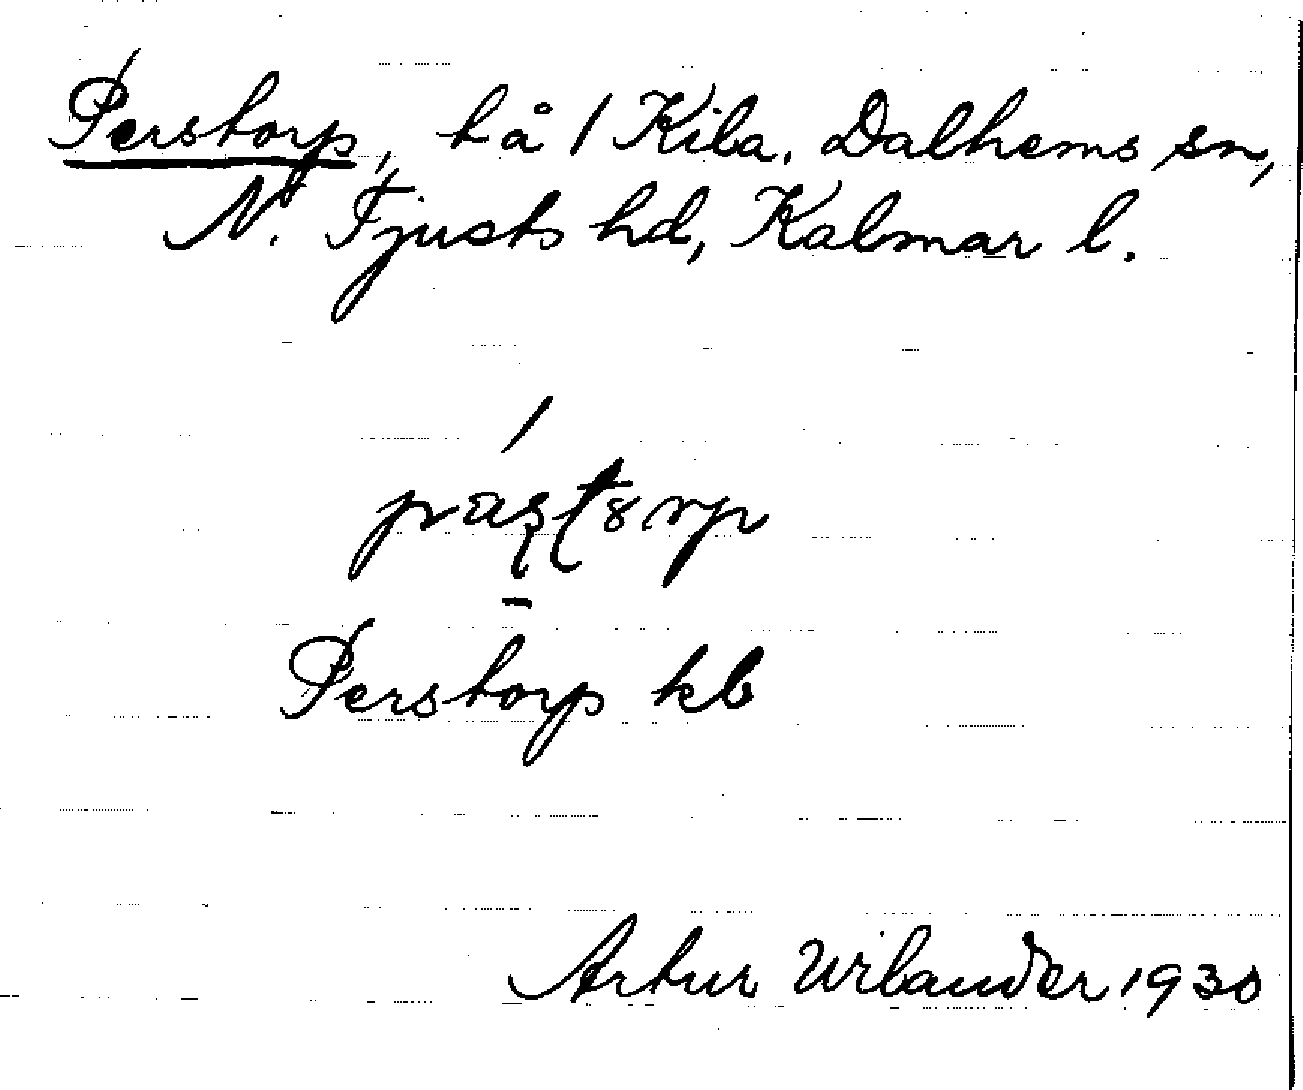 Perstorp, tå / Kila, Dalhems sn,
N. Tjusts hd, Kalmar l.
Perstorp kb
Artur Wilander 1930